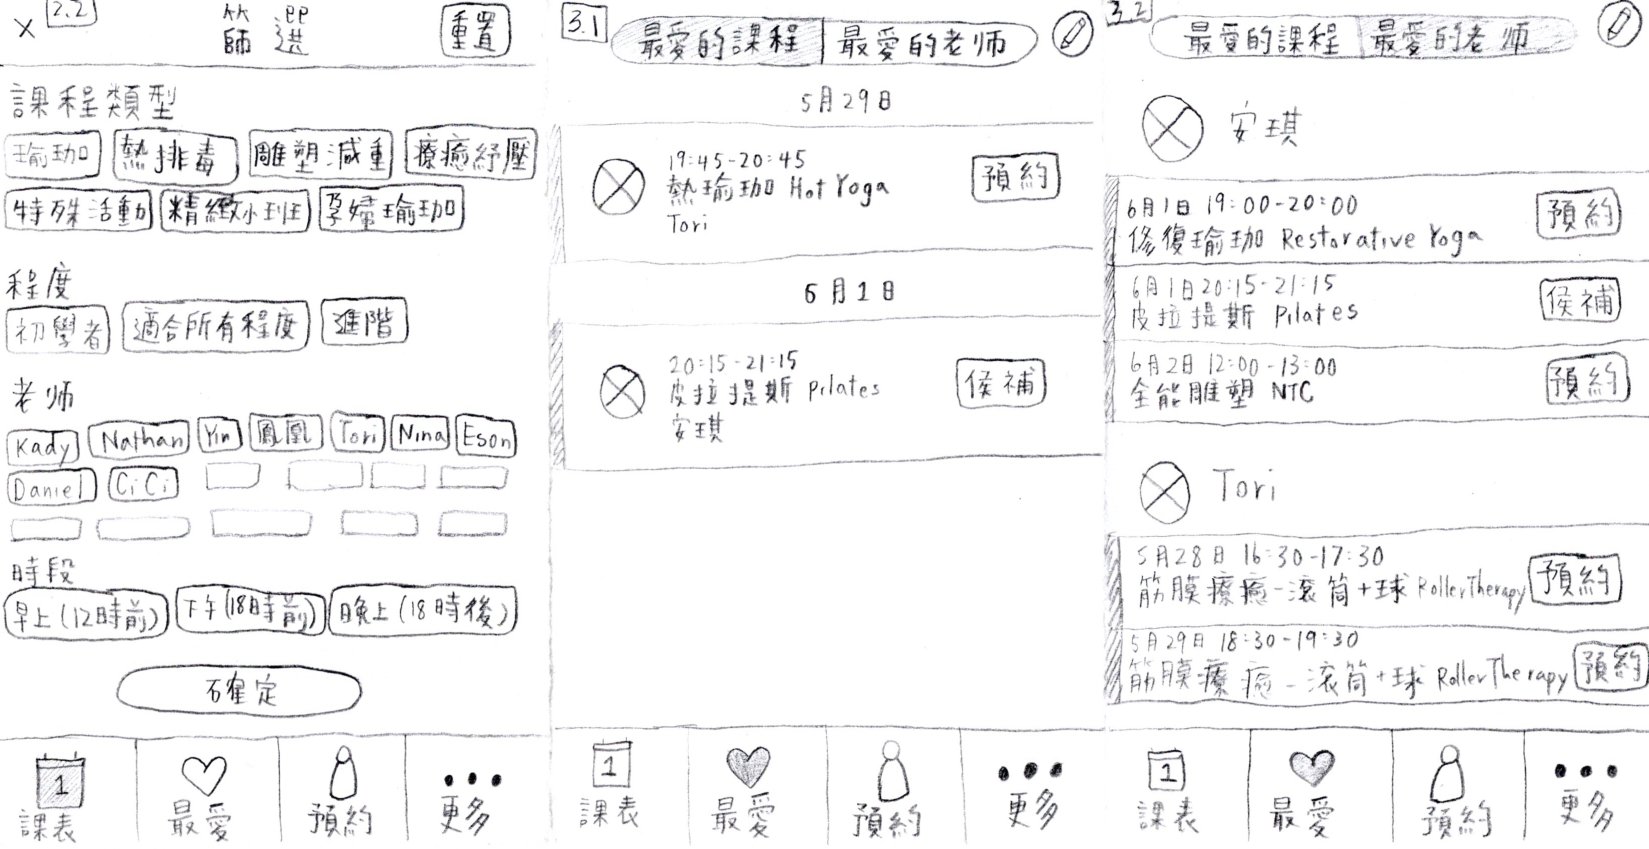 × 2.2 篩選 重置
課程類型
瑜珈 熱排毒 雕塑減重 療癒紓壓
特殊活動 精緻小班 孕婦瑜珈
程度
初學者 適合所有程度 進階
老师
Kady Nathan Yin 鳳凰 Tori Nina Eson
Daniel CiCi
時段
早上(12時前) 下午(18時前) 晚上(18時後)
確定
1
課表 最愛 預約 更多
3.1 最愛的課程 最愛的老师
5月29日
19:45-20:45
熱瑜珈 Hot Yoga
Tori
預約
6月1日
20:15-21:15
皮拉提斯 Pilates
安琪
侯補
1
課表 最愛 預約 更多
3.2 最愛的課程 最愛的老师
安琪
6月1日 19:00-20:00
修復瑜珈 Restorative Yoga
預約
6月1日 20:15-21:15
皮拉提斯 Pilates
侯補
6月2日 12:00-13:00
全能雕塑 NTC
預約
Tori
5月28日 16:30-17:30
筋膜療癒-滾筒+球 RollerTherapy
預約
5月29日 18:30-19:30
筋膜療癒-滾筒+球 RollerTherapy
預約
1
課表 最愛 預約 更多